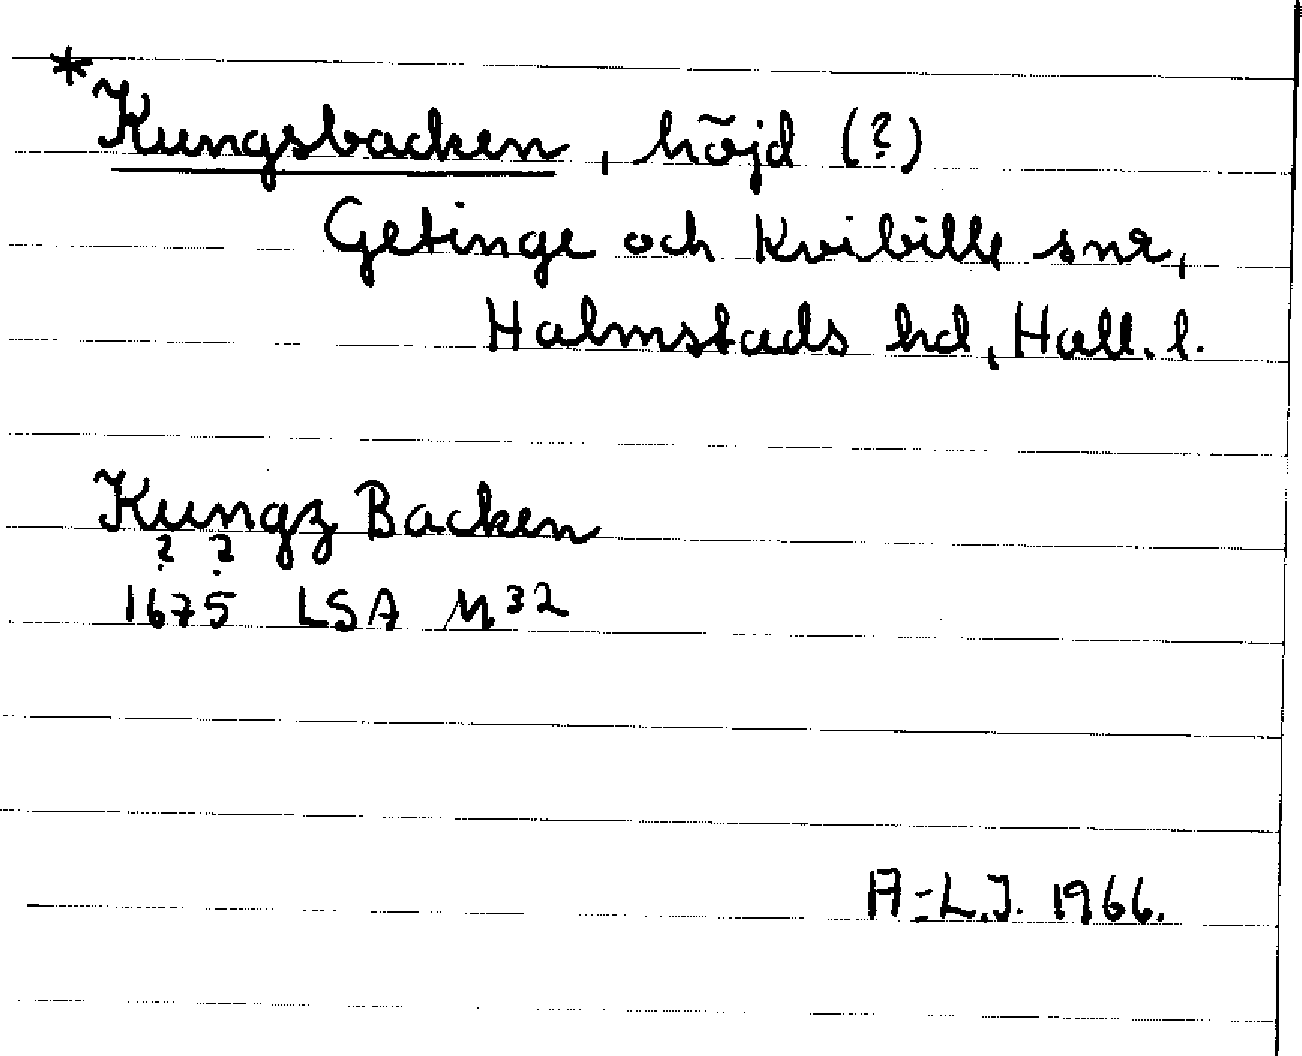 *Kungsbacken, höjd (?)
Getinge och Kvibille snr,
Halmstads hd, Hall. l.
Kungz Backen
? ?
1675 LSA M32
A-L.J. 1966.